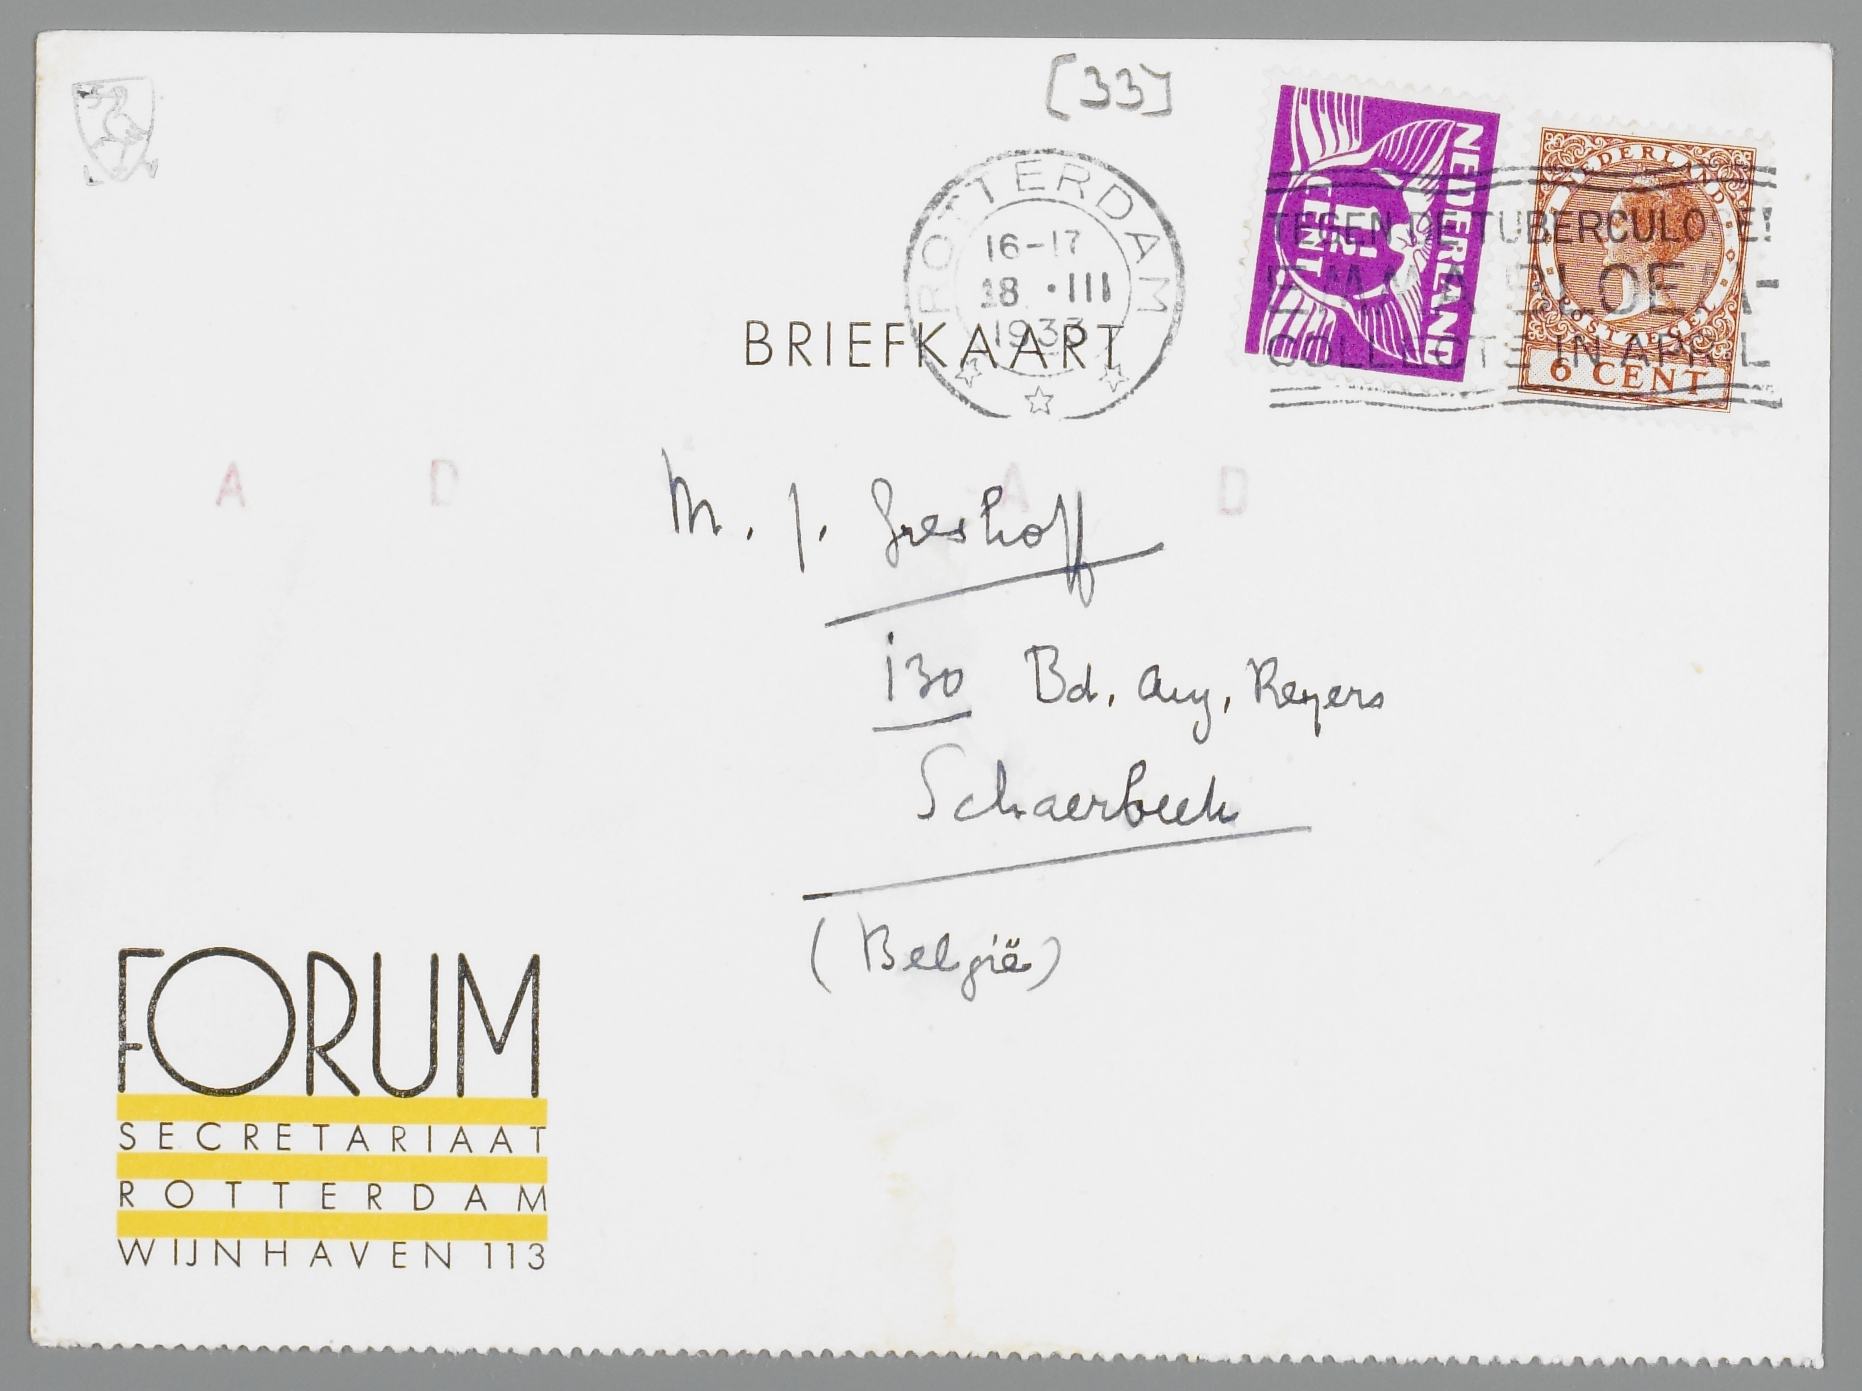 [33]
ROTTERDAM
16-17
18 · III
1933
NEDERLAND
1½
CENT
NEDERLAND
POSTZEGEL
6 CENT
TEGEN DE TUBERCULOSE!
EMMA BLOEM-
COLLECTE IN APRIL
BRIEFKAART
A D A D
M. J. Greshoff
130 Bd. Aug. Reyers
Schaerbeek
(België)
FORUM
SECRETARIAAT
ROTTERDAM
WIJNHAVEN 113